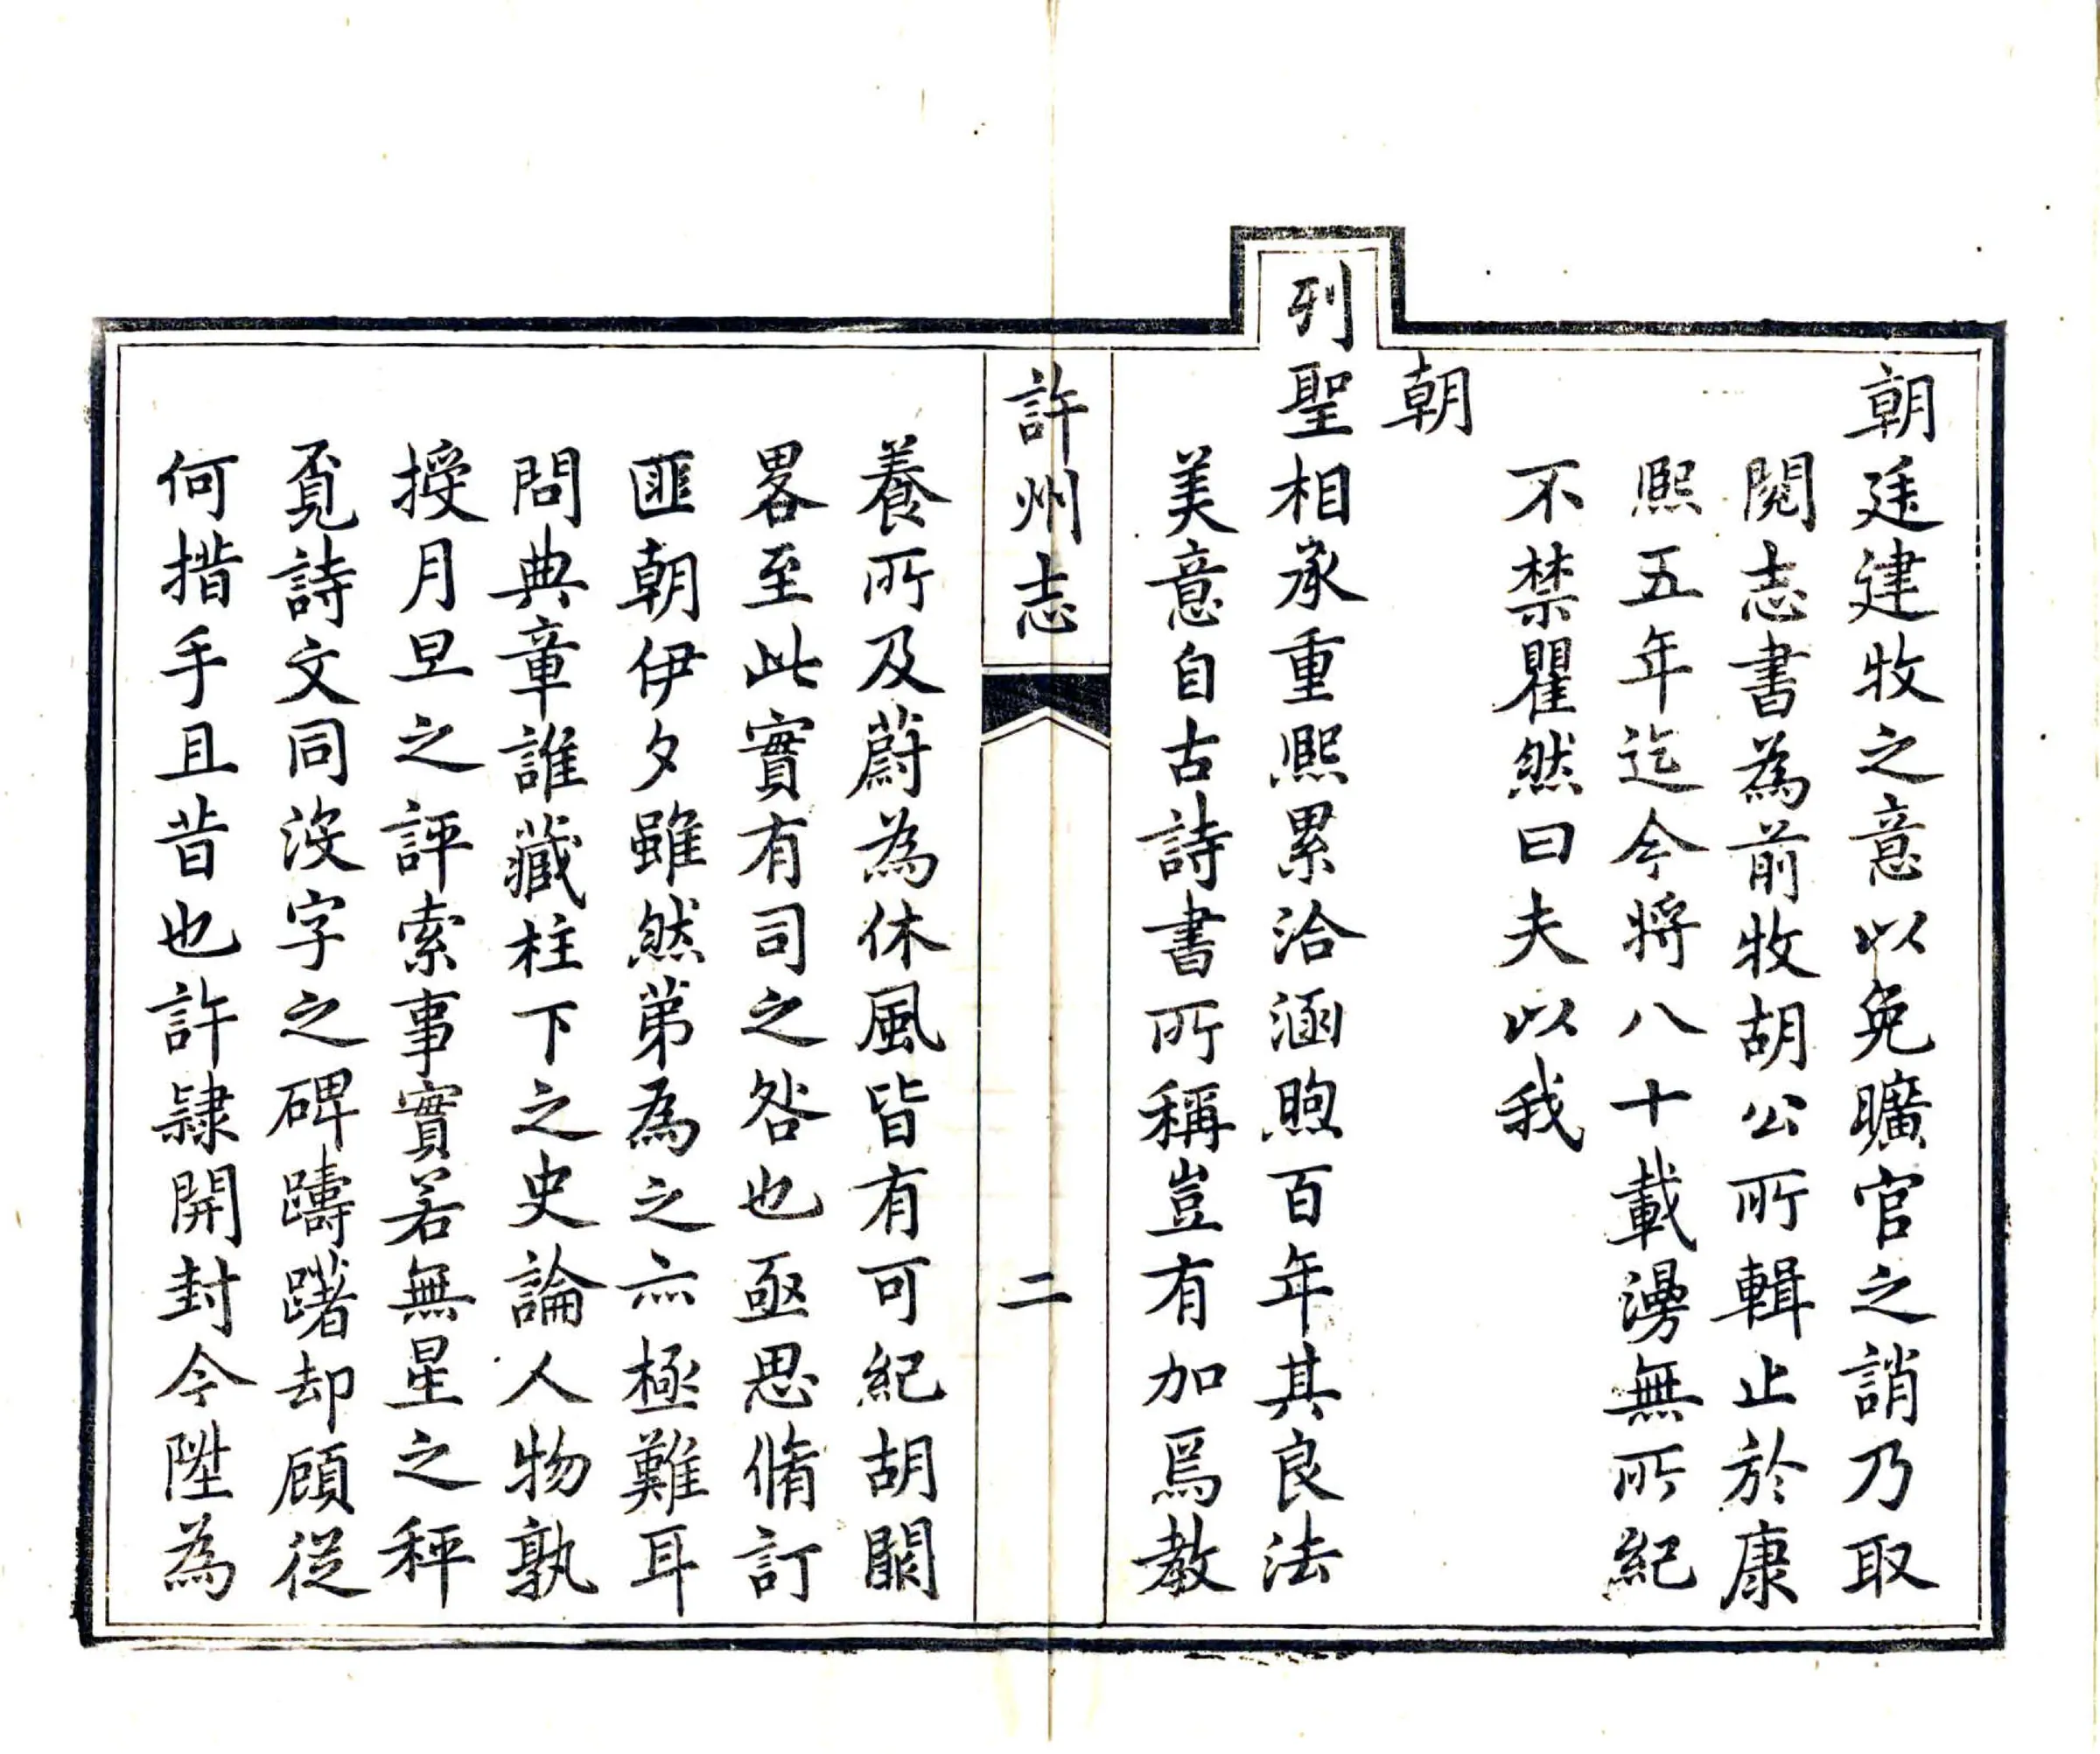 朝廷建牧之意以免曠官之誚乃取
閱志書為前牧胡公所輯止於康
熙五年迄今將八十載漫無所紀
不禁瞿然曰夫以我
朝
列聖相承重熙累洽涵煦百年其良法
美意自古詩書所稱豈有加焉教
許州志
二
養所及蔚為休風皆有可紀胡闕
畧至此實有司之咎也亟思脩訂
匪朝伊夕雖然第為之亦極難耳
問典章誰藏柱下之史論人物孰
授月旦之評索事實若無星之秤
覓詩文同沒字之碑躊躇却顧從
何措手且昔也許隸開封今陞為